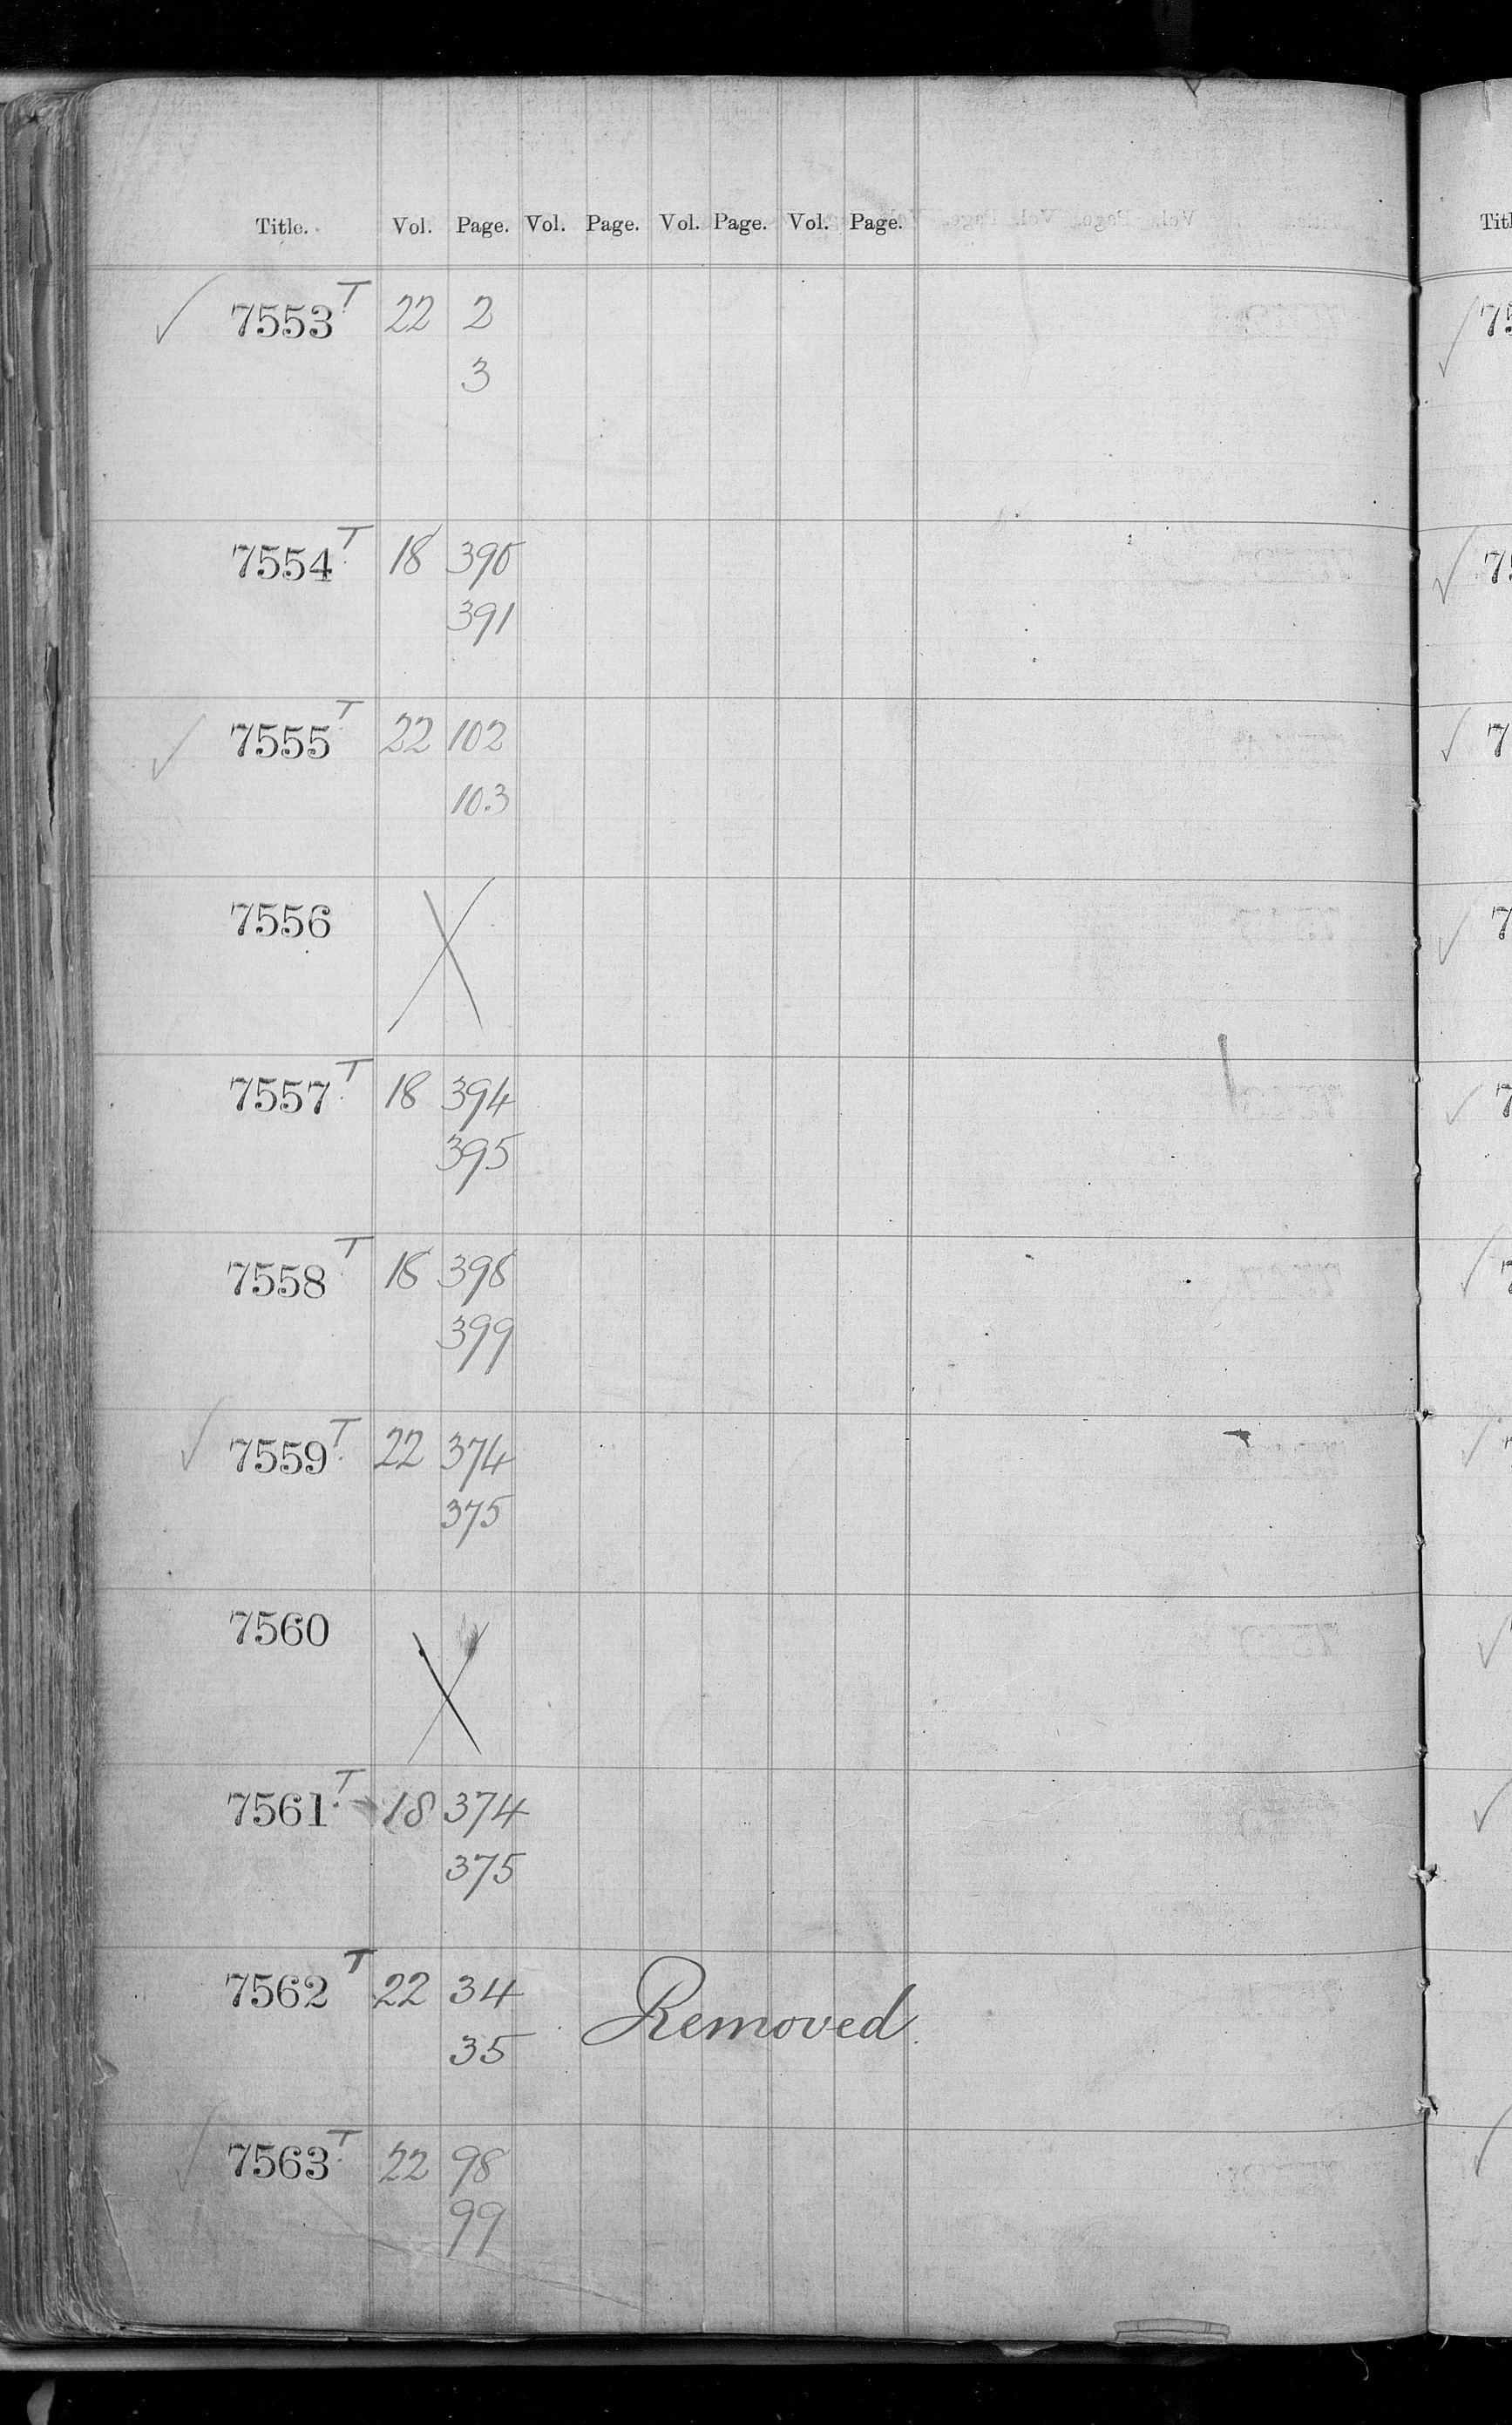 Title. Vol. Page. Vol. Page. Vol. Page. Vol. Page.
✓ 7553 T 22 2
3
7554 T 18 390
391
✓ 7555 T 22 102
103
7556 X
7557 T 18 394
395
7558 T 18 398
399
✓ 7559 T 22 374
375
7560 X
7561 T 18 374
375
7562 T 22 34
35
Removed.
✓ 7563 T 22 98
99